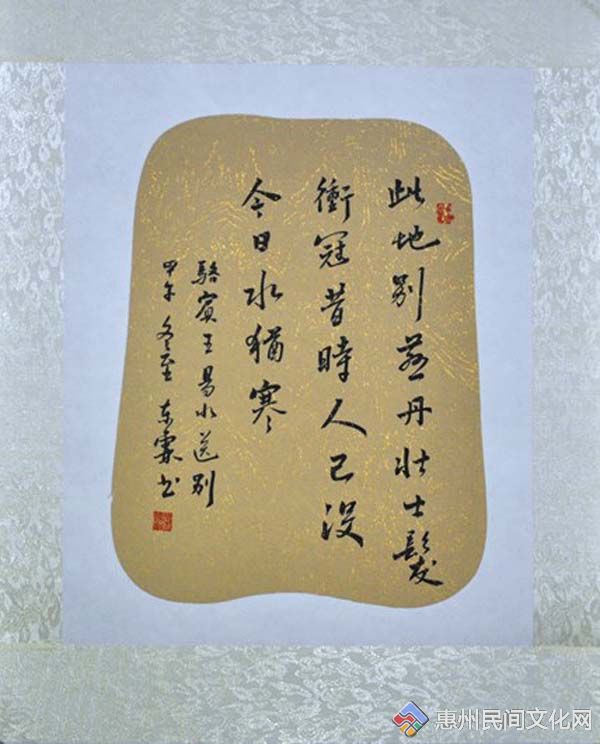 此地别燕丹壮士髮
衝冠昔時人已没
今日水猶寒
駱賓王易水送别
甲午冬至 东霖书
惠州民间文化网